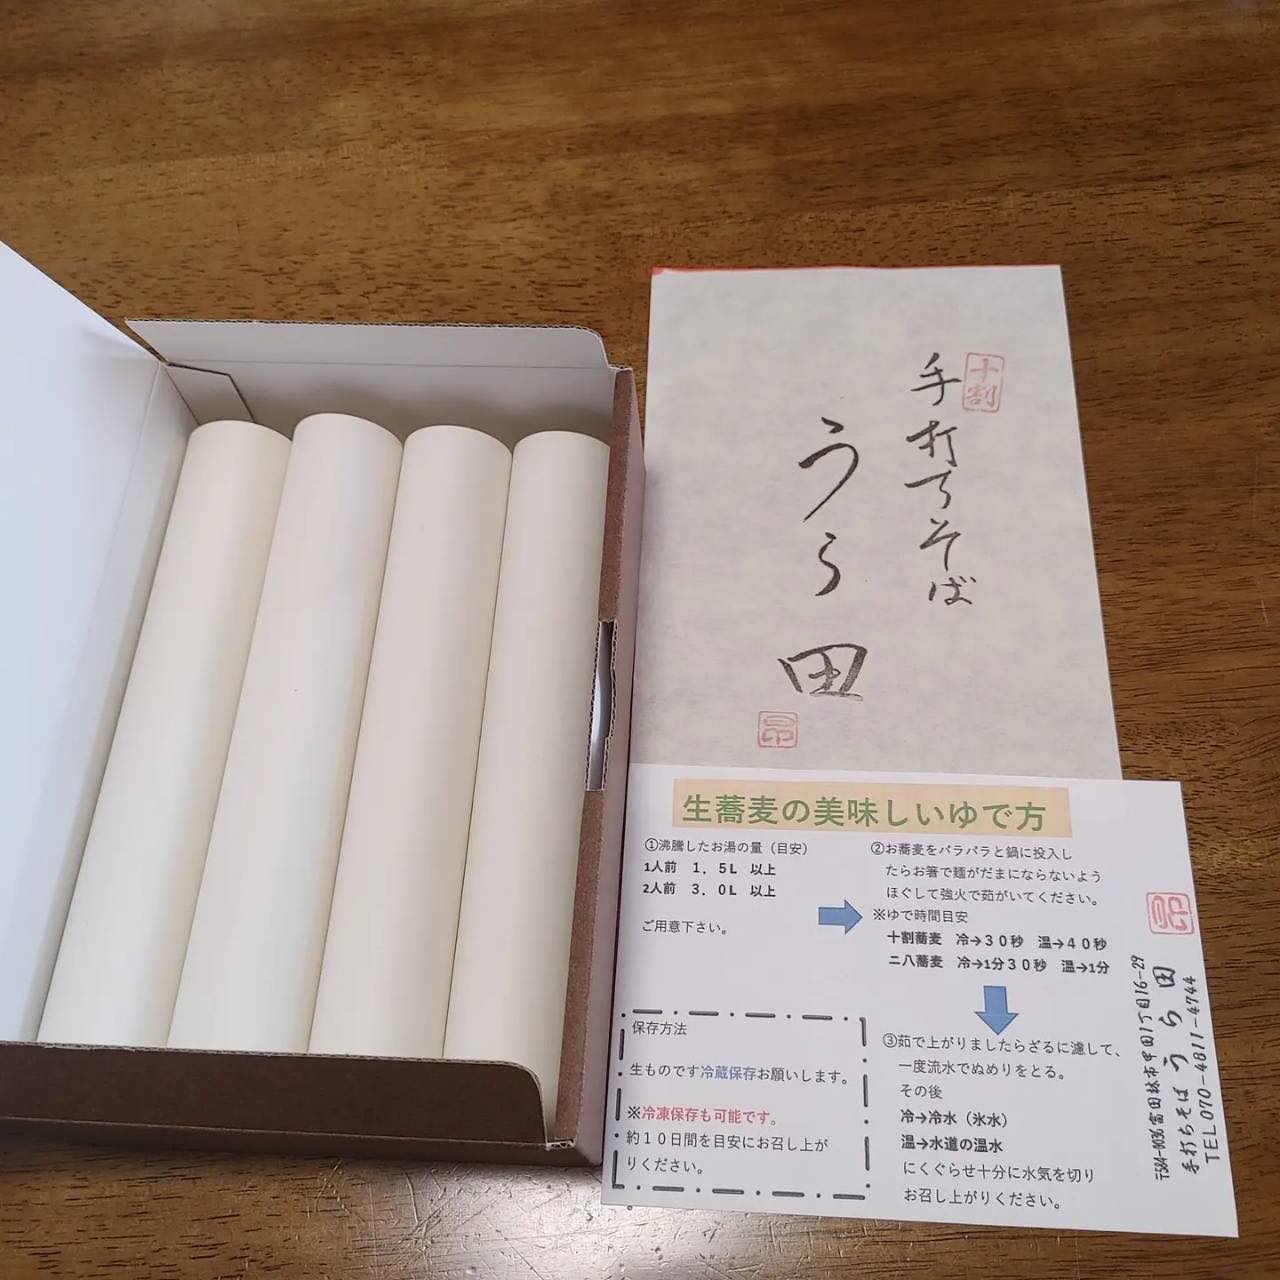 十割
手打ちそば
うら田
昴
生蕎麦の美味しいゆで方
①沸騰したお湯の量（目安）
1人前　1．5L　以上
2人前　3．0L　以上
ご用意下さい。
②お蕎麦をパラパラと鍋に投入し
たらお箸で麺がだまにならないよう
ほぐして強火で茹がいてください。
※ゆで時間目安
十割蕎麦　冷→３０秒　温→４０秒
二八蕎麦　冷→1分３０秒　温→1分
③茹で上がりましたらざるに濾して、
一度流水でぬめりをとる。
その後
冷→冷水（氷水）
温→水道の温水
にくぐらせ十分に水気を切り
お召し上がりください。
保存方法
生ものです冷蔵保存お願いします。
※冷凍保存も可能です。
約１０日間を目安にお召し上が
りください。
昴
〒584-0036 富田林市甲田1丁目16-29
手打ちそば うら田
TEL 070-4811-4744